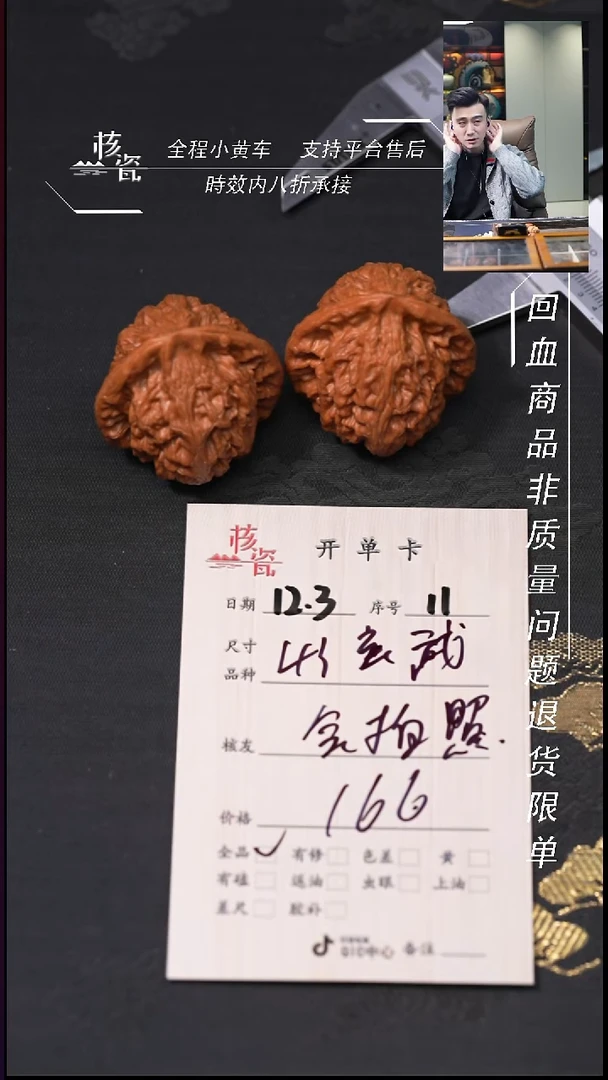 核瓷
全程小黄车 支持平台售后
時效内八折承接
回血商品非质量问题退货限单
核瓷
开单卡
日期 12.3 序号 11
尺寸
品种
核友
价格 166
全品 ✓ 有修 色差 黄
有磕 送油 虫眼 上油
差尺 胶补
QIC中心 备注